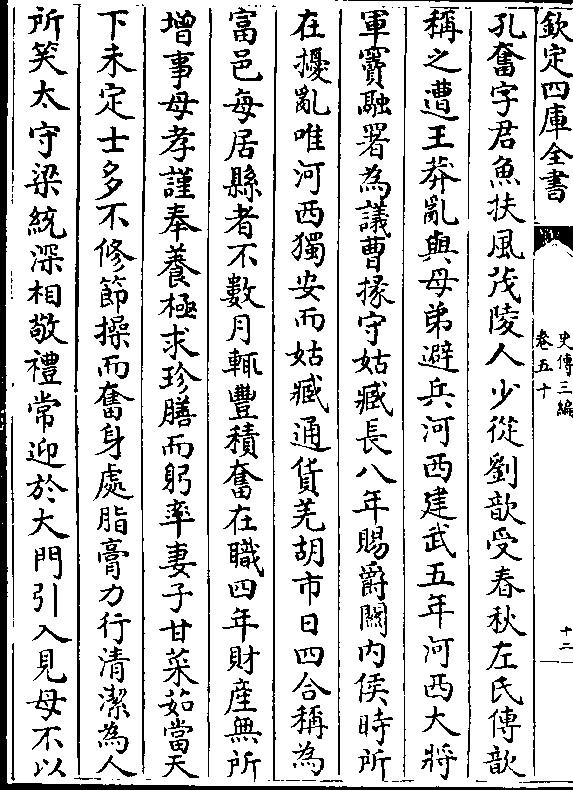 欽定四庫全書
史傳三編
卷五十
十二
孔奮字君魚扶風茂陵人少從劉歆受春秋左氏傳歆
稱之遭王莽亂與母弟避兵河西建武五年河西大將
軍竇融署為議曹掾守姑臧長八年賜爵關内侯時所
在擾亂唯河西獨安而姑臧通貨羌胡市日四合稱為
富邑每居縣者不數月輒豐積奮在職四年財産無所
增事母孝謹奉養極求珍膳而躬率妻子甘菜茹當天
下未定士多不修節操而奮身處脂膏力行清潔為人
所笑太守梁統深相敬禮常迎於大門引入見母不以